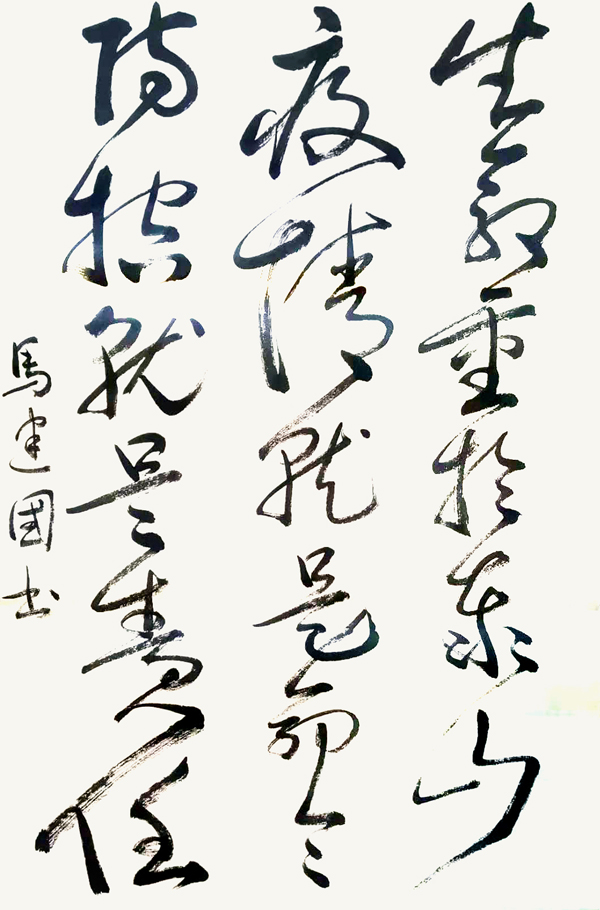 生命重於泰山
疫情就是命令
防控就是責任
馬建國书